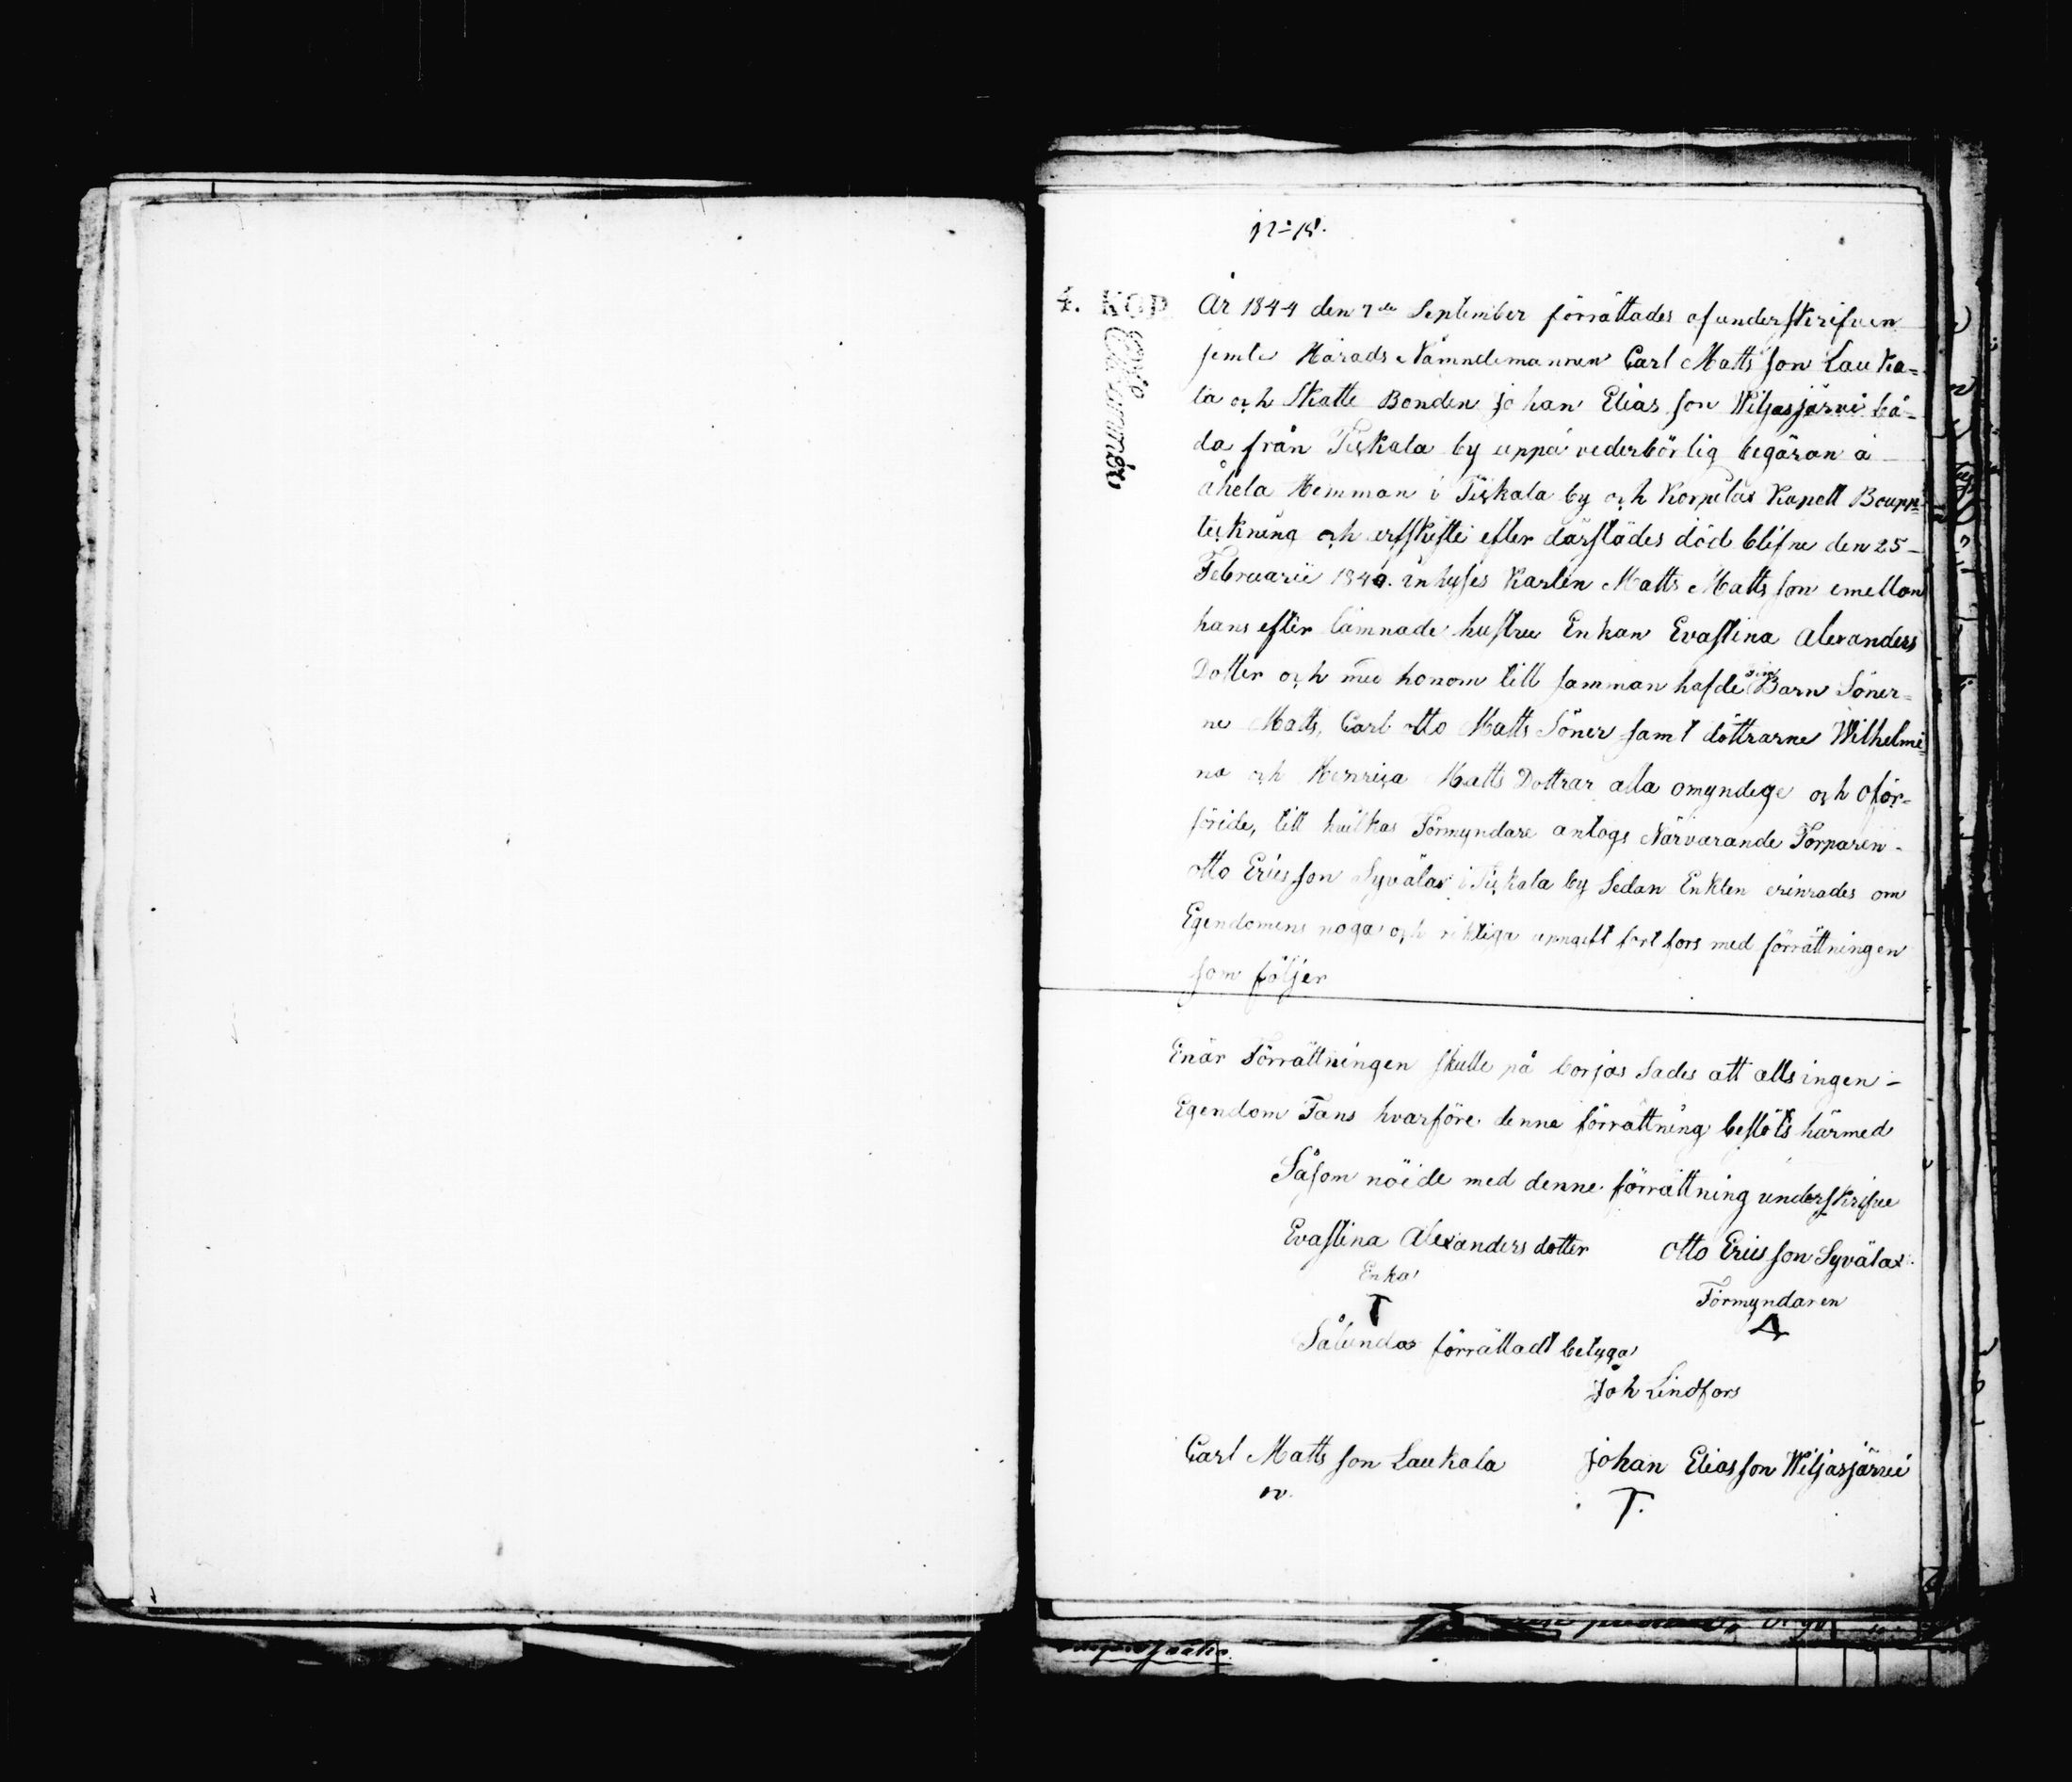 12-18.
4. KOP
År 1844 den 7de September förrättades af underskrifven
jemte Härads Nämndemannen Carl Matts son Lauka=
la och Skatte Bonden Johan Elias son Wiljasjärvi bå-
da från Tiskala by uppå vederbörlig begäran å
åhela Hemman i Tiskala by och Korpilax Kapell Boupp=
teckning och arfskifte efter därstädes död blifne den 25
Februarii 1840. inhyses Karlen Matts Matts son emellan
hans efter lämnade hustru Enkan Evastina Alexanders
Dotter och med honom till samman hafde Barn Söner=
ne Matts, Carl otto Matts Söner samt döttrarne Wilhelmi=
na och Henrica Matts Dottrar alla omyndege och oför=
söride, till hvilkas Förmyndare antogs Närvarande Torparen
otto Ericsson Syvälax i Tiskala by Sedan Enklen erinrades om
Egendomens noga och riktiga uppgift fort fors med förrättningen
som följer
Enär Förrättningen skulle på borjas Sades att alls ingen
Egendom Fans hvarföre denne förrättning beslöts härmed
Såsom nöide med denne förrättning underskrifve
Evastina Alexanders dotter otto Ericsson Syvälax
Enka Förmyndaren
T
Sålunda förrättadt betyga
Joh Lindfors
Carl Matts son Laukala Johan Eliasson Wiljasjärvi
T.